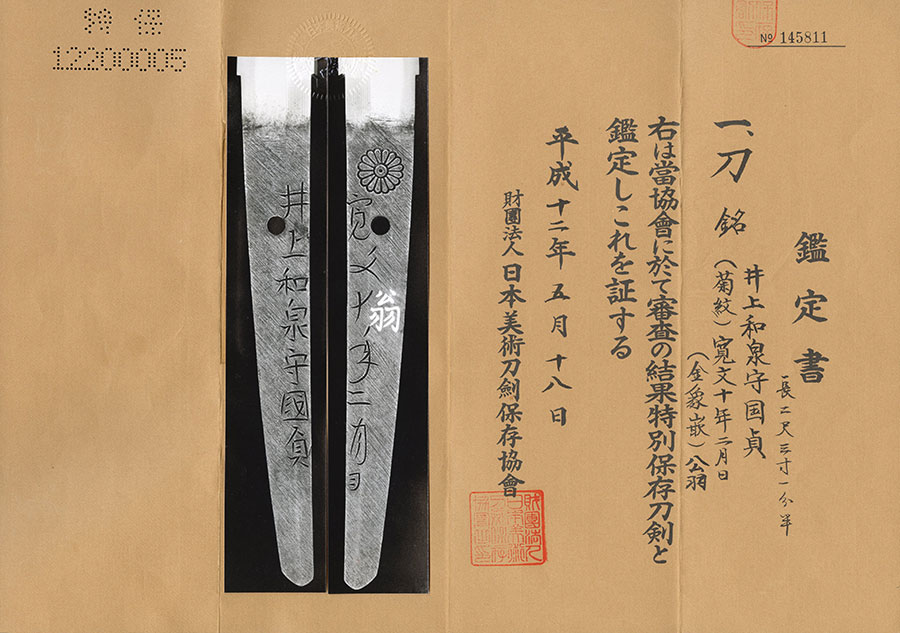 特 保
12200005
No 145811
鑑定書
一、刀 銘
井上和泉守国貞
(菊紋)寛文十年二月日
(金象嵌)公翁
長二尺三寸一分半
右は當協會に於て審査の結果特別保存刀剣と
鑑定しこれを証する
平成十二年五月十八日
財團法人 日本美術刀劍保存協會
寛文十年二月日
翁
井上和泉守國貞